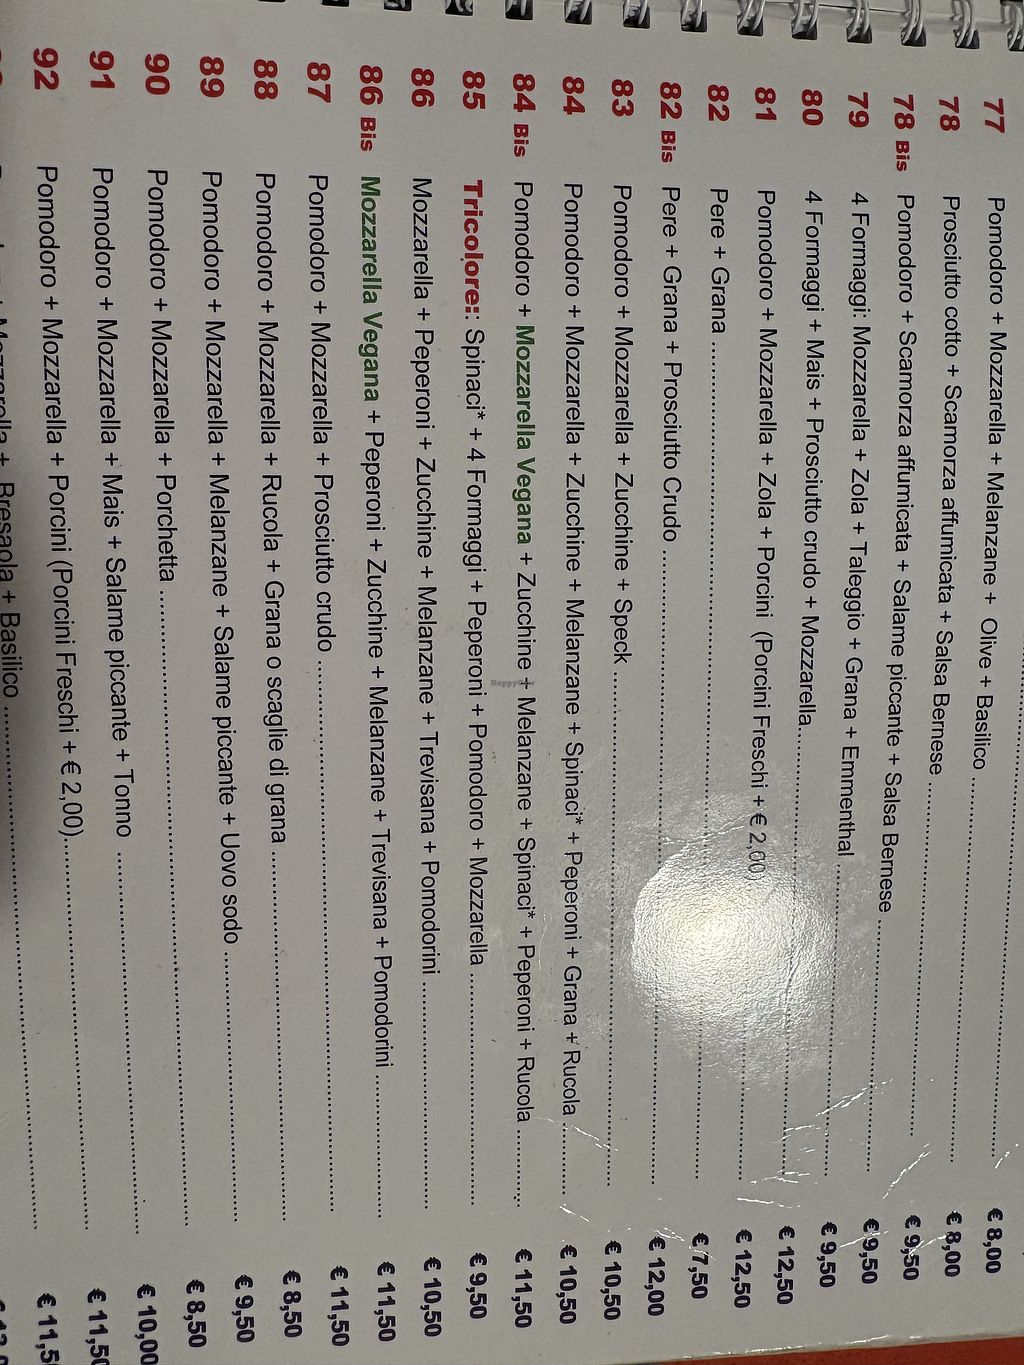 € 8,00
77 Pomodoro + Mozzarella + Melanzane + Olive + Basilico € 8,00
78 Prosciutto cotto + Scamorza affumicata + Salsa Bernese € 9,50
78 Bis Pomodoro + Scamorza affumicata + Salame piccante + Salsa Bernese € 9,50
79 4 Formaggi: Mozzarella + Zola + Taleggio + Grana + Emmenthal € 9,50
80 4 Formaggi + Mais + Prosciutto crudo + Mozzarella € 12,50
81 Pomodoro + Mozzarella + Zola + Porcini (Porcini Freschi + € 2,00) € 12,50
82 Pere + Grana € 7,50
82 Bis Pere + Grana + Prosciutto Crudo € 12,00
83 Pomodoro + Mozzarella + Zucchine + Speck € 10,50
84 Pomodoro + Mozzarella + Zucchine + Melanzane + Spinaci* + Peperoni + Grana + Rucola € 10,50
84 Bis Pomodoro + Mozzarella Vegana + Zucchine + Melanzane + Spinaci* + Peperoni + Rucola € 11,50
85 Tricolore:: Spinaci* + 4 Formaggi + Peperoni + Pomodoro + Mozzarella € 9,50
86 Mozzarella + Peperoni + Zucchine + Melanzane + Trevisana + Pomodorini € 10,50
86 Bis Mozzarella Vegana + Peperoni + Zucchine + Melanzane + Trevisana + Pomodorini € 11,50
87 Pomodoro + Mozzarella + Prosciutto crudo € 11,50
88 Pomodoro + Mozzarella + Rucola + Grana o scaglie di grana € 8,50
89 Pomodoro + Mozzarella + Melanzane + Salame piccante + Uovo sodo € 9,50
90 Pomodoro + Mozzarella + Porchetta € 8,50
91 Pomodoro + Mozzarella + Mais + Salame piccante + Tonno € 10,00
92 Pomodoro + Mozzarella + Porcini (Porcini Freschi + € 2,00) € 11,50
Mozzarella + Bresaola + Basilico € 11,5
HappyCow